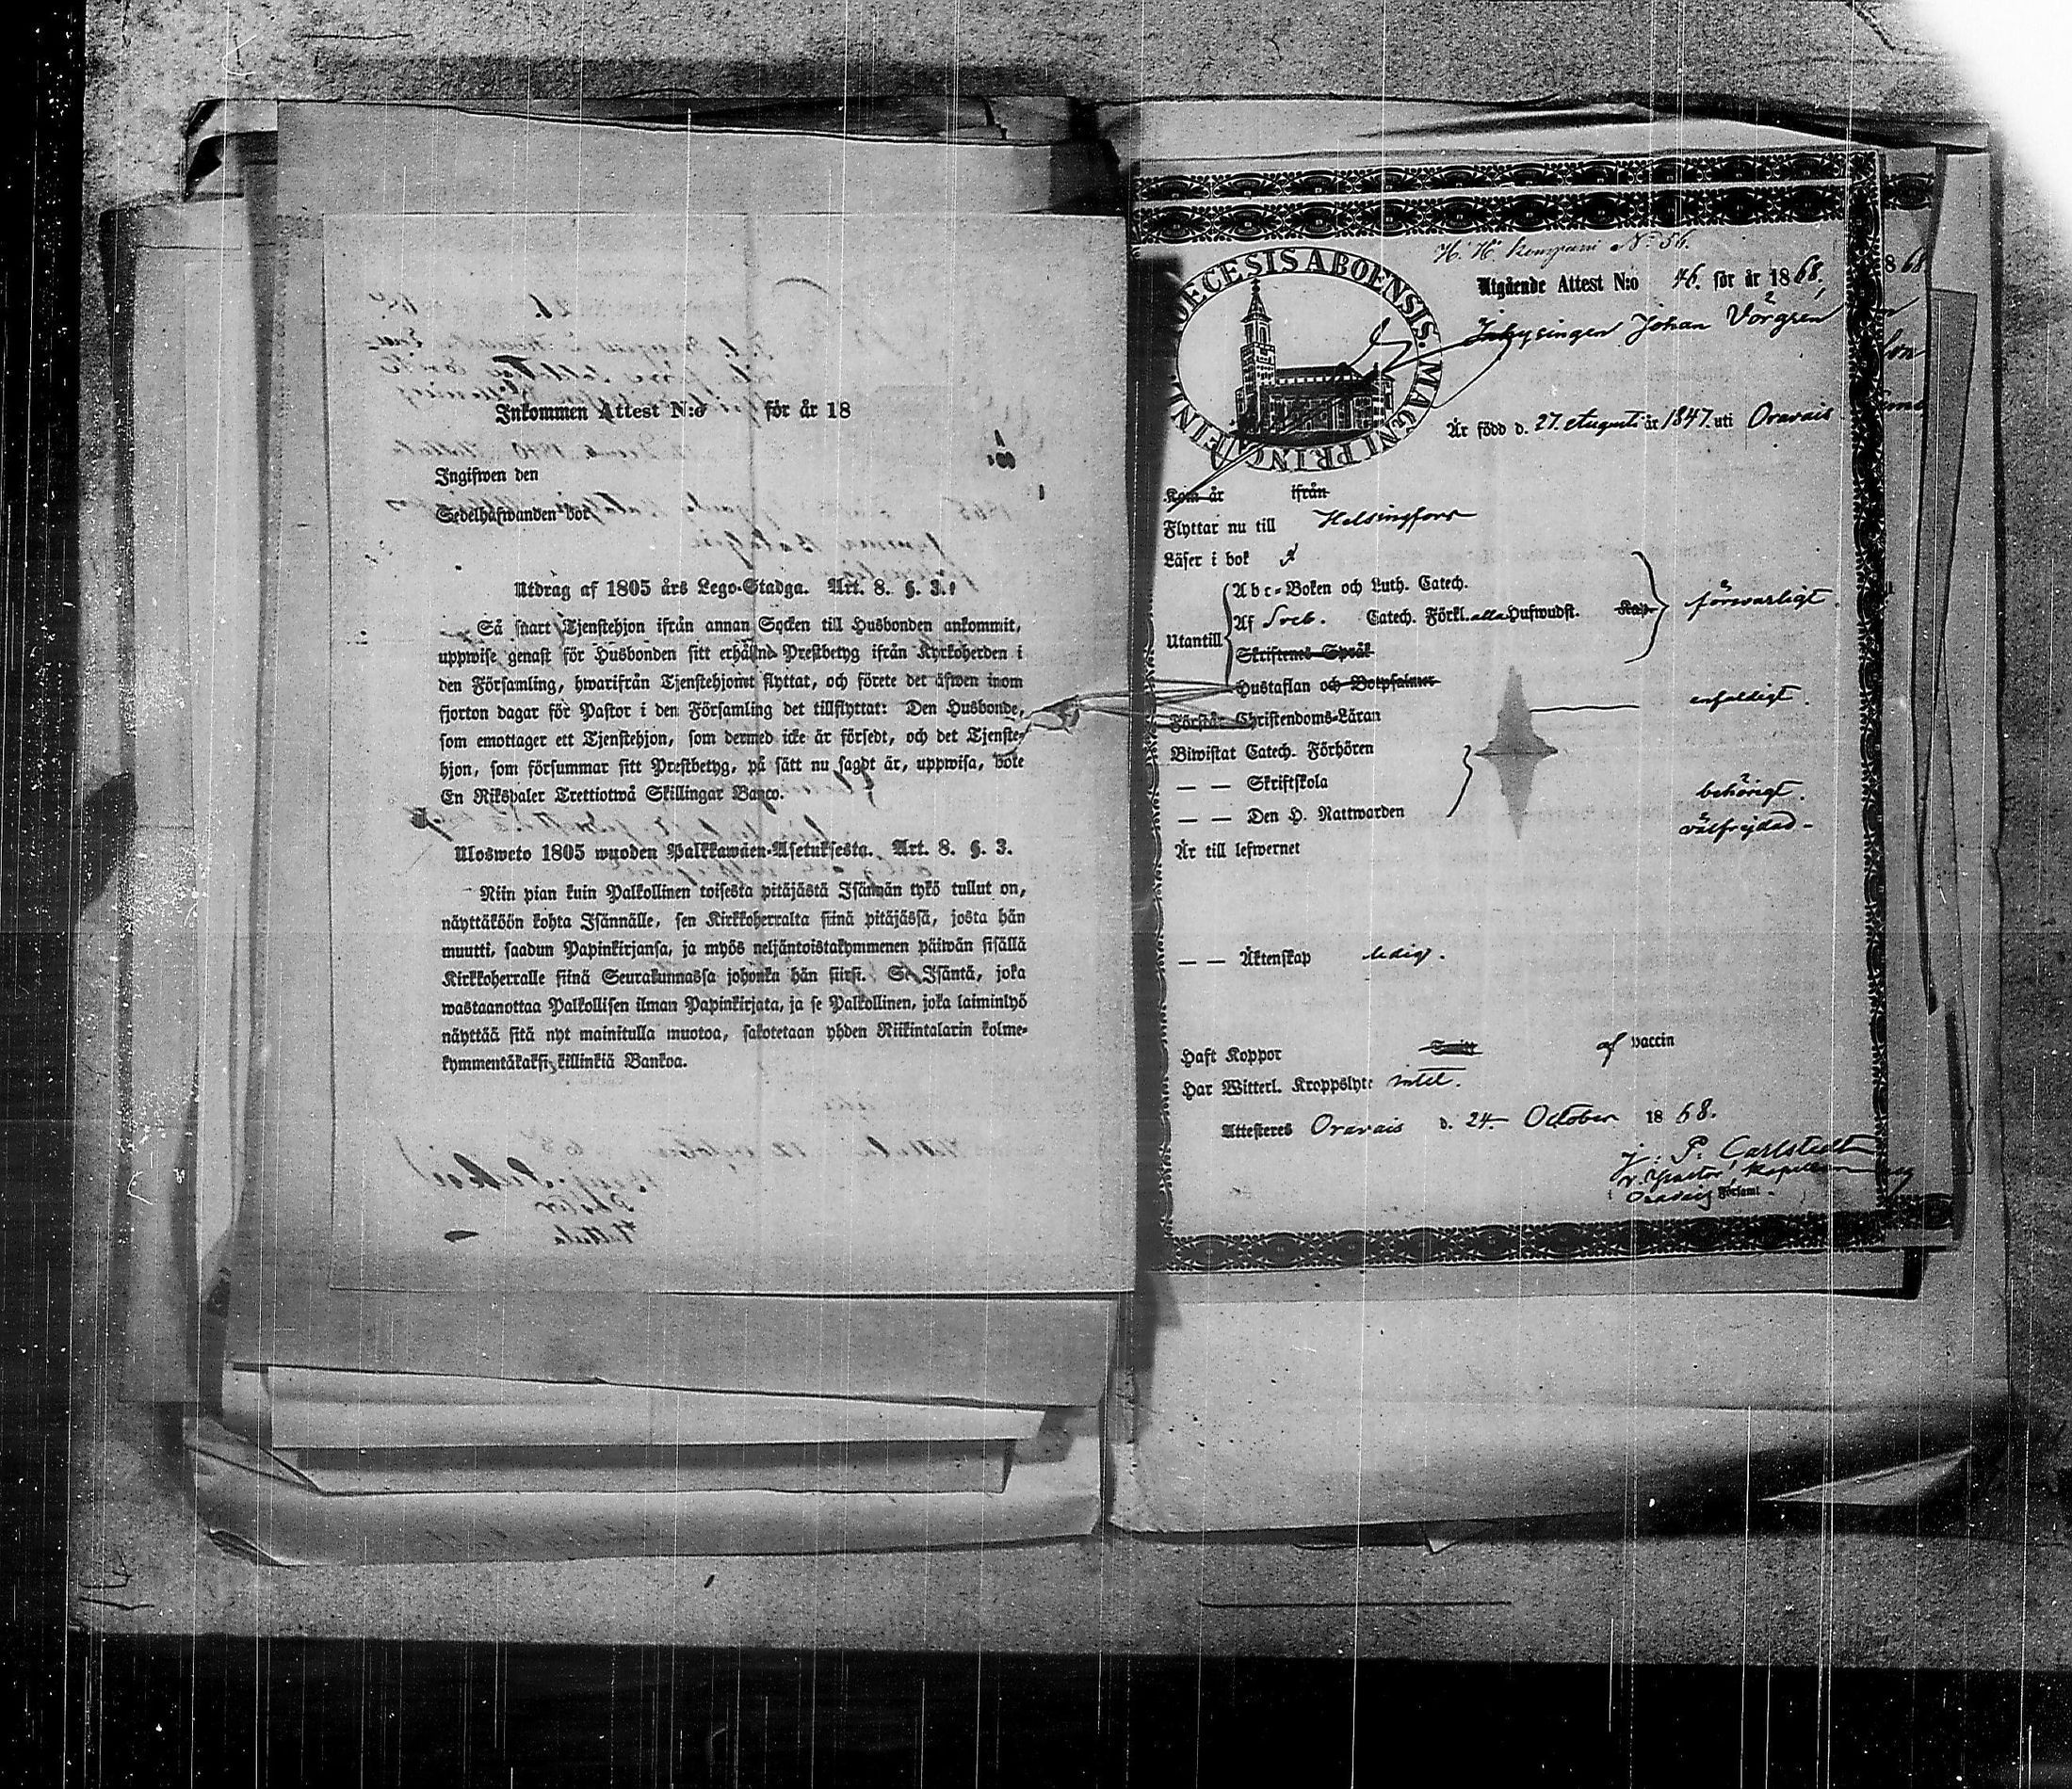 Inkommen Attest N:o för år 18
Ingifwen den
Sedelhafwanden bor
Utdrag af 1805 års Lego-Stadga. Art. 8. §. 3.
Så snart Tjenstehjon ifrån annan Socken till Husbonden ankommit,
uppwise genast för Husbonden sitt erhållna Prestbetyg ifrån Kyrkoherden i
den Församling, hwarifrån Tjenstehjonet flyttat, och förete det äfwen inom
fjorton dagar för Pastor i den Församling det tillflyttat: Den Husbonde,
som emottager ett Tjenstehjon, som dermed icke är försedt, och det Tjenste-
hjon, som försummar sitt Prestbetyg, på sätt nu sagdt är, uppwisa, böte
En Riksdaler Trettiotwå Skillingar Banco.
Ulosweto 1805 wuoden Palkkawäen-Asetuksesta. Art. 8. §. 3.
Niin pian kuin Palkollinen toisesta pitäjästä Isännän tykö tullut on,
näyttäköön kohta Isännälle, sen Kirkkoherralta siinä pitäjässä, josta hän
muutti, saadun Papinkirjansa, ja myös neljäntoistakymmenen päiwän sisällä
Kirkkoherralle siinä Seurakunnassa johonka hän siirsi. Se Isäntä, joka
wastaanottaa Palkollisen ilman Papinkirjata, ja se Palkollinen, joka laiminlyö
näyttää sitä nyt mainitulla muotoa, sakotetaan yhden Riikintalarin kolme-
kymmentäkaksi killinkiä Bankoa.
H. H. Kompani No 56.
DIOECESIS ABOENSIS. MAGNI PRINC
Utgående Attest N:o 46. för år 1868,
Inhysingen Johan Vörgren
Är född d. 27. Augusti år 1847. uti Oravais
Kom år ifrån
Flyttar nu till Helsingfors
Läser i bok
Utantill
Abc-Boken och Luth. Catech.
Af Sveb. Catech. Förkl. alla Hufwudst. Kap. försvarligt.
Skriftenes Språk
Hustaflan och Botpsalmer
Förstår Christendoms-Läran enfaldigt.
Biwistat Catech. Förhören
— — Skriftskola
— — Den H. Nattwarden behörigt.
Är till lefwernet välfrejdad.
— — Äktenskap ledig.
Haft Koppor Smitt af vaccin
Har Witterl. Kroppslyte intet.
Attesteres Oravais d. 24. October 1868.
J. P. Carlstedt
v. Pastor, Kapellan
Oravais Församl.
868